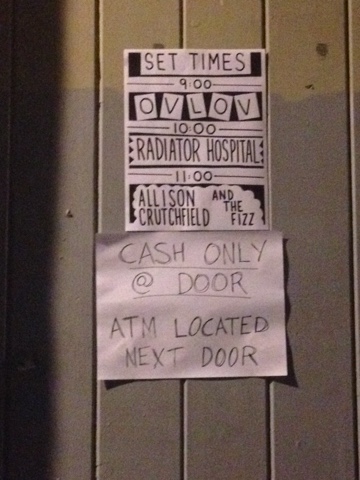 SET TIMES
9:00
OVLOV
10:00
RADIATOR HOSPITAL
11:00
ALLISON CRUTCHFIELD AND THE FIZZ
CASH ONLY
@ DOOR
ATM LOCATED
NEXT DOOR